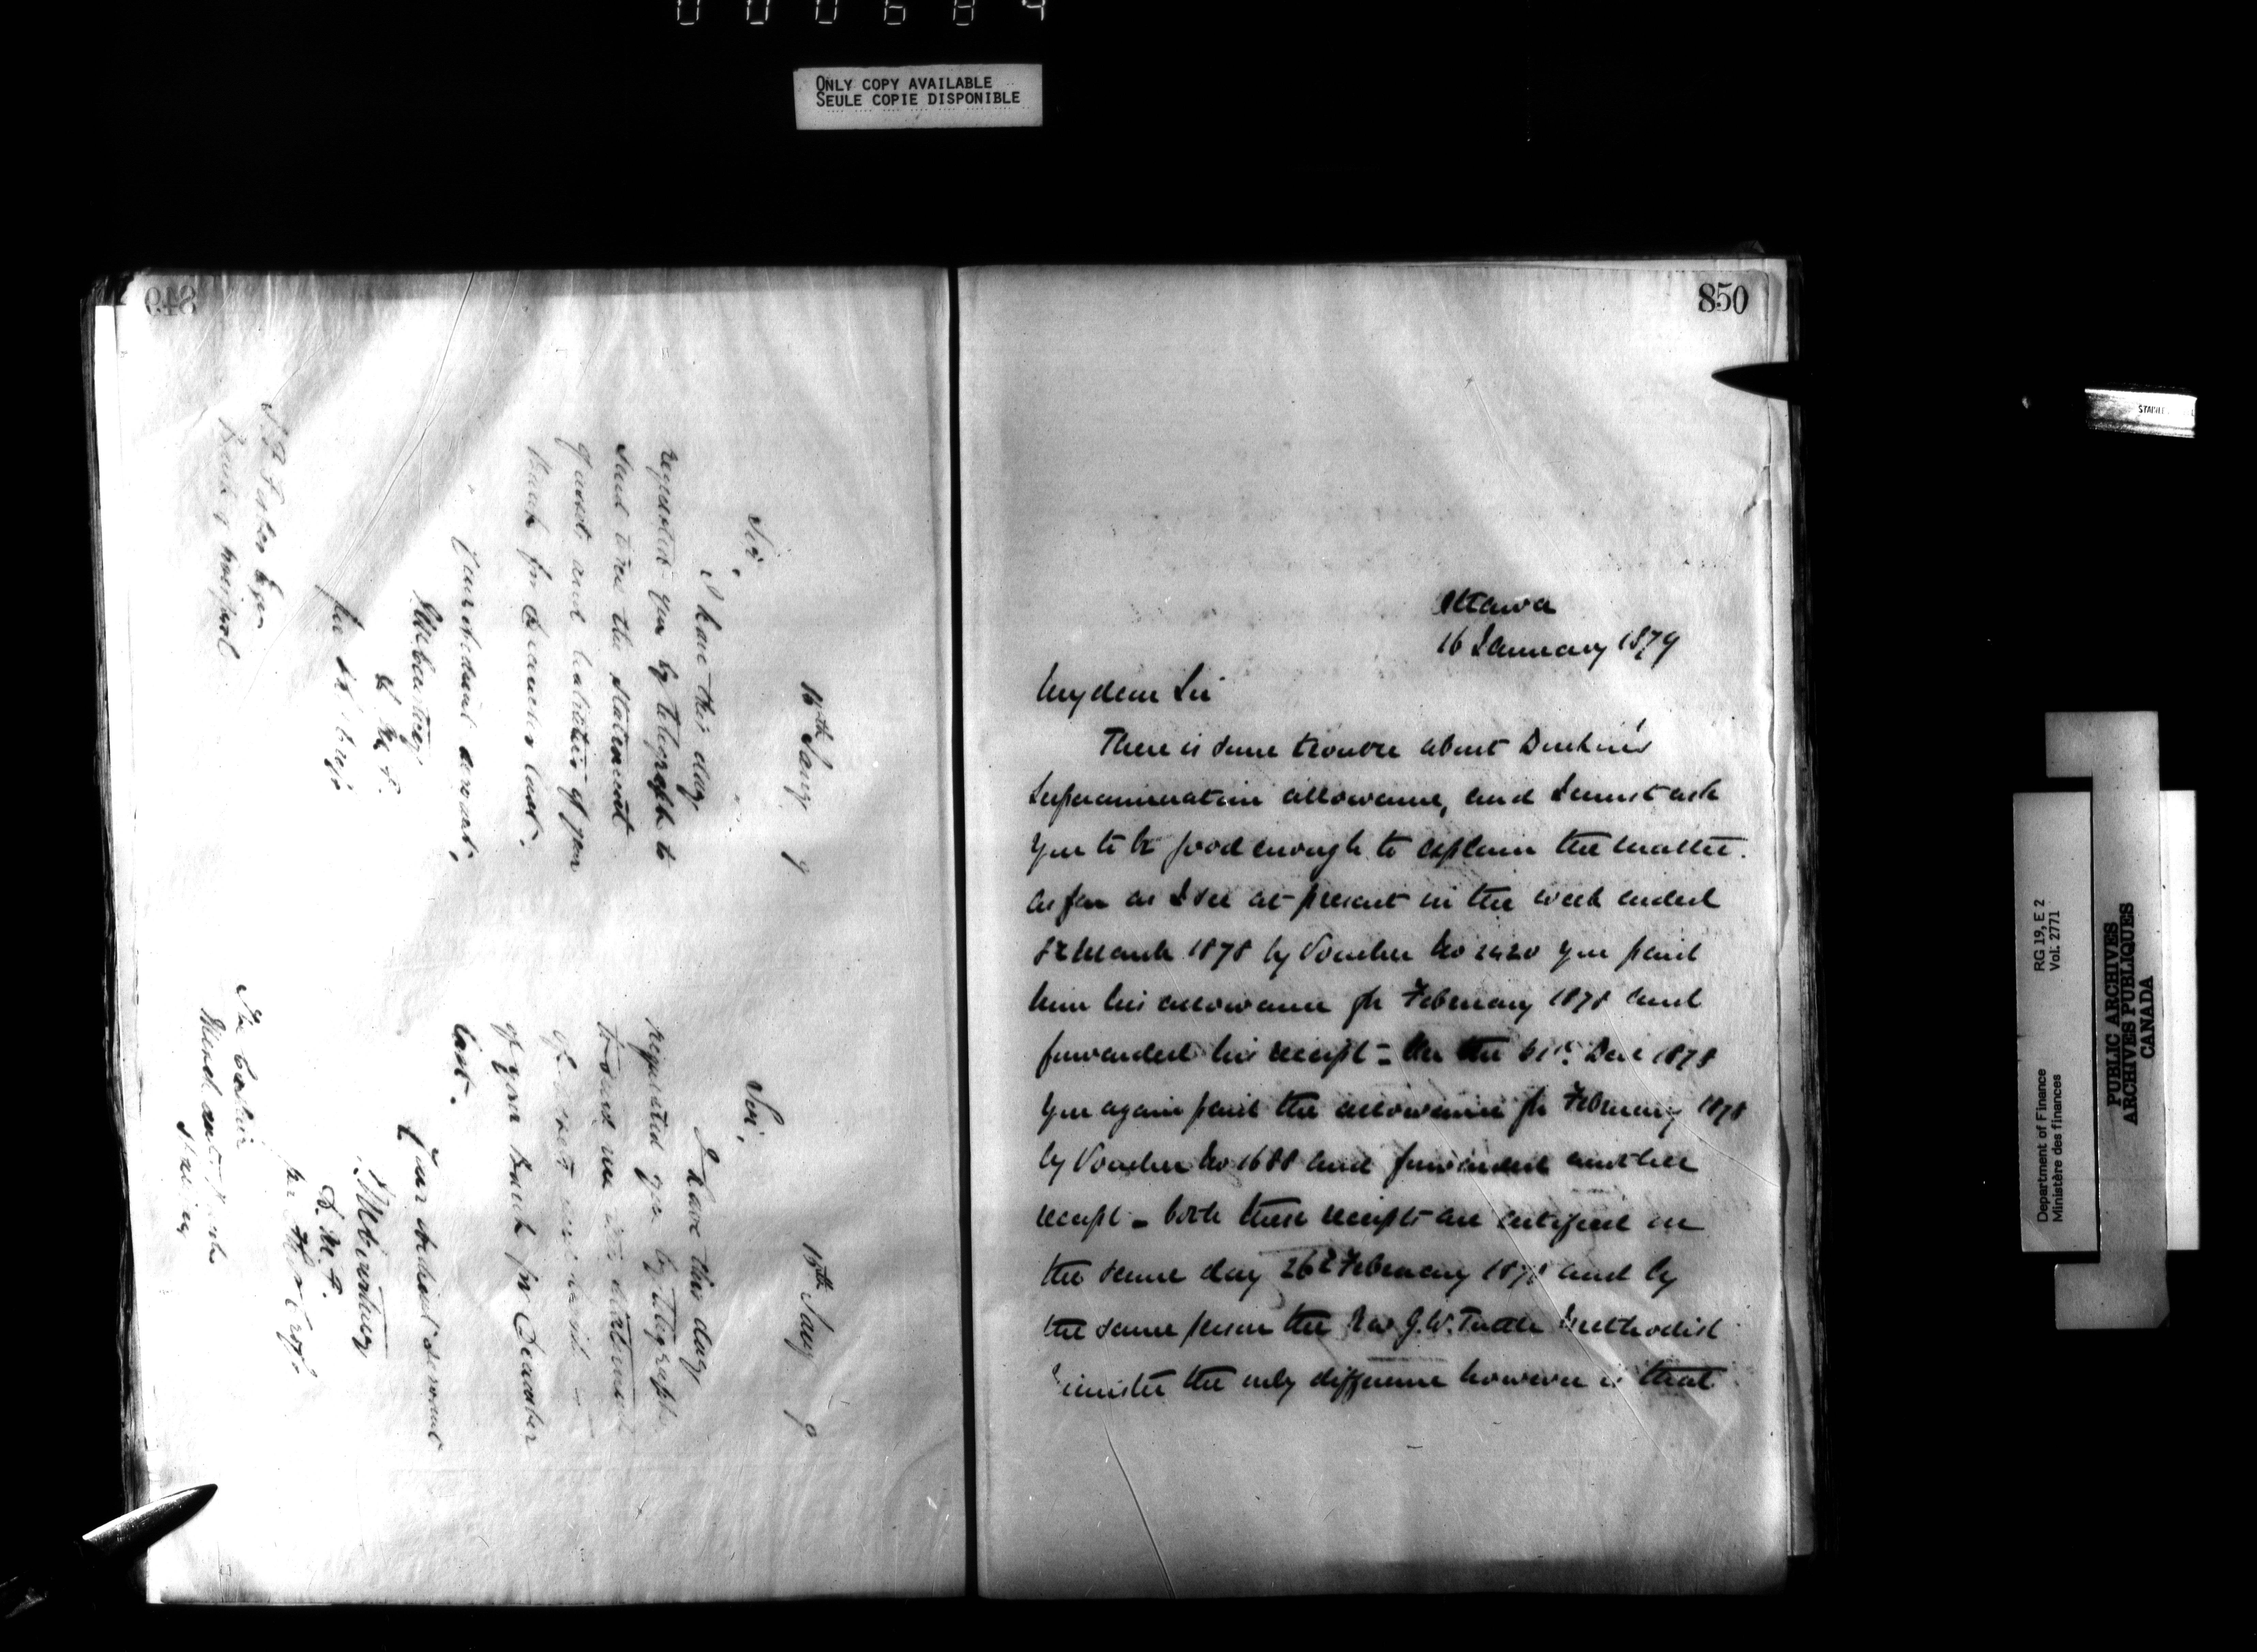 000684
ONLY COPY AVAILABLE
SEULE COPIE DISPONIBLE
849
16th Jany 9
Sir,
I have this day
requested you by telegraph to
send me the statement
of assets and liabilities of your
Bank for December last.
Your obedient servant,
D. M. F.
per
Bank of Liverpool
16th Jany 9
Sir,
I have this day
requested you by telegraph
to send me the statement
of assets and
of your Bank for December
last.
Your obedient servant
D. M. F.
per
The Cashier
850
Ottawa
16 January 1879
My dear Sir
There is some trouble about Durkin's
Superannuation allowance, and I must ask
you to be good enough to explain the matter.
As far as I see at present in the week ended
March 1878 by Voucher No 2420 you paid
him his allowance for February 1878 and
forwarded his receipt - On the 31st Dec 1878
you again paid the allowance for February 1878
by Voucher No 1688 and forwarded another
receipt - both these receipts are certified on
the same day 26th February 1878 and by
the same person the Rev J. W. Tuttle Methodist
Minister the only difference however is that
STAINLESS
Department of Finance RG 19, E 2
Ministère des finances Vol. 2771
PUBLIC ARCHIVES
ARCHIVES PUBLIQUES
CANADA